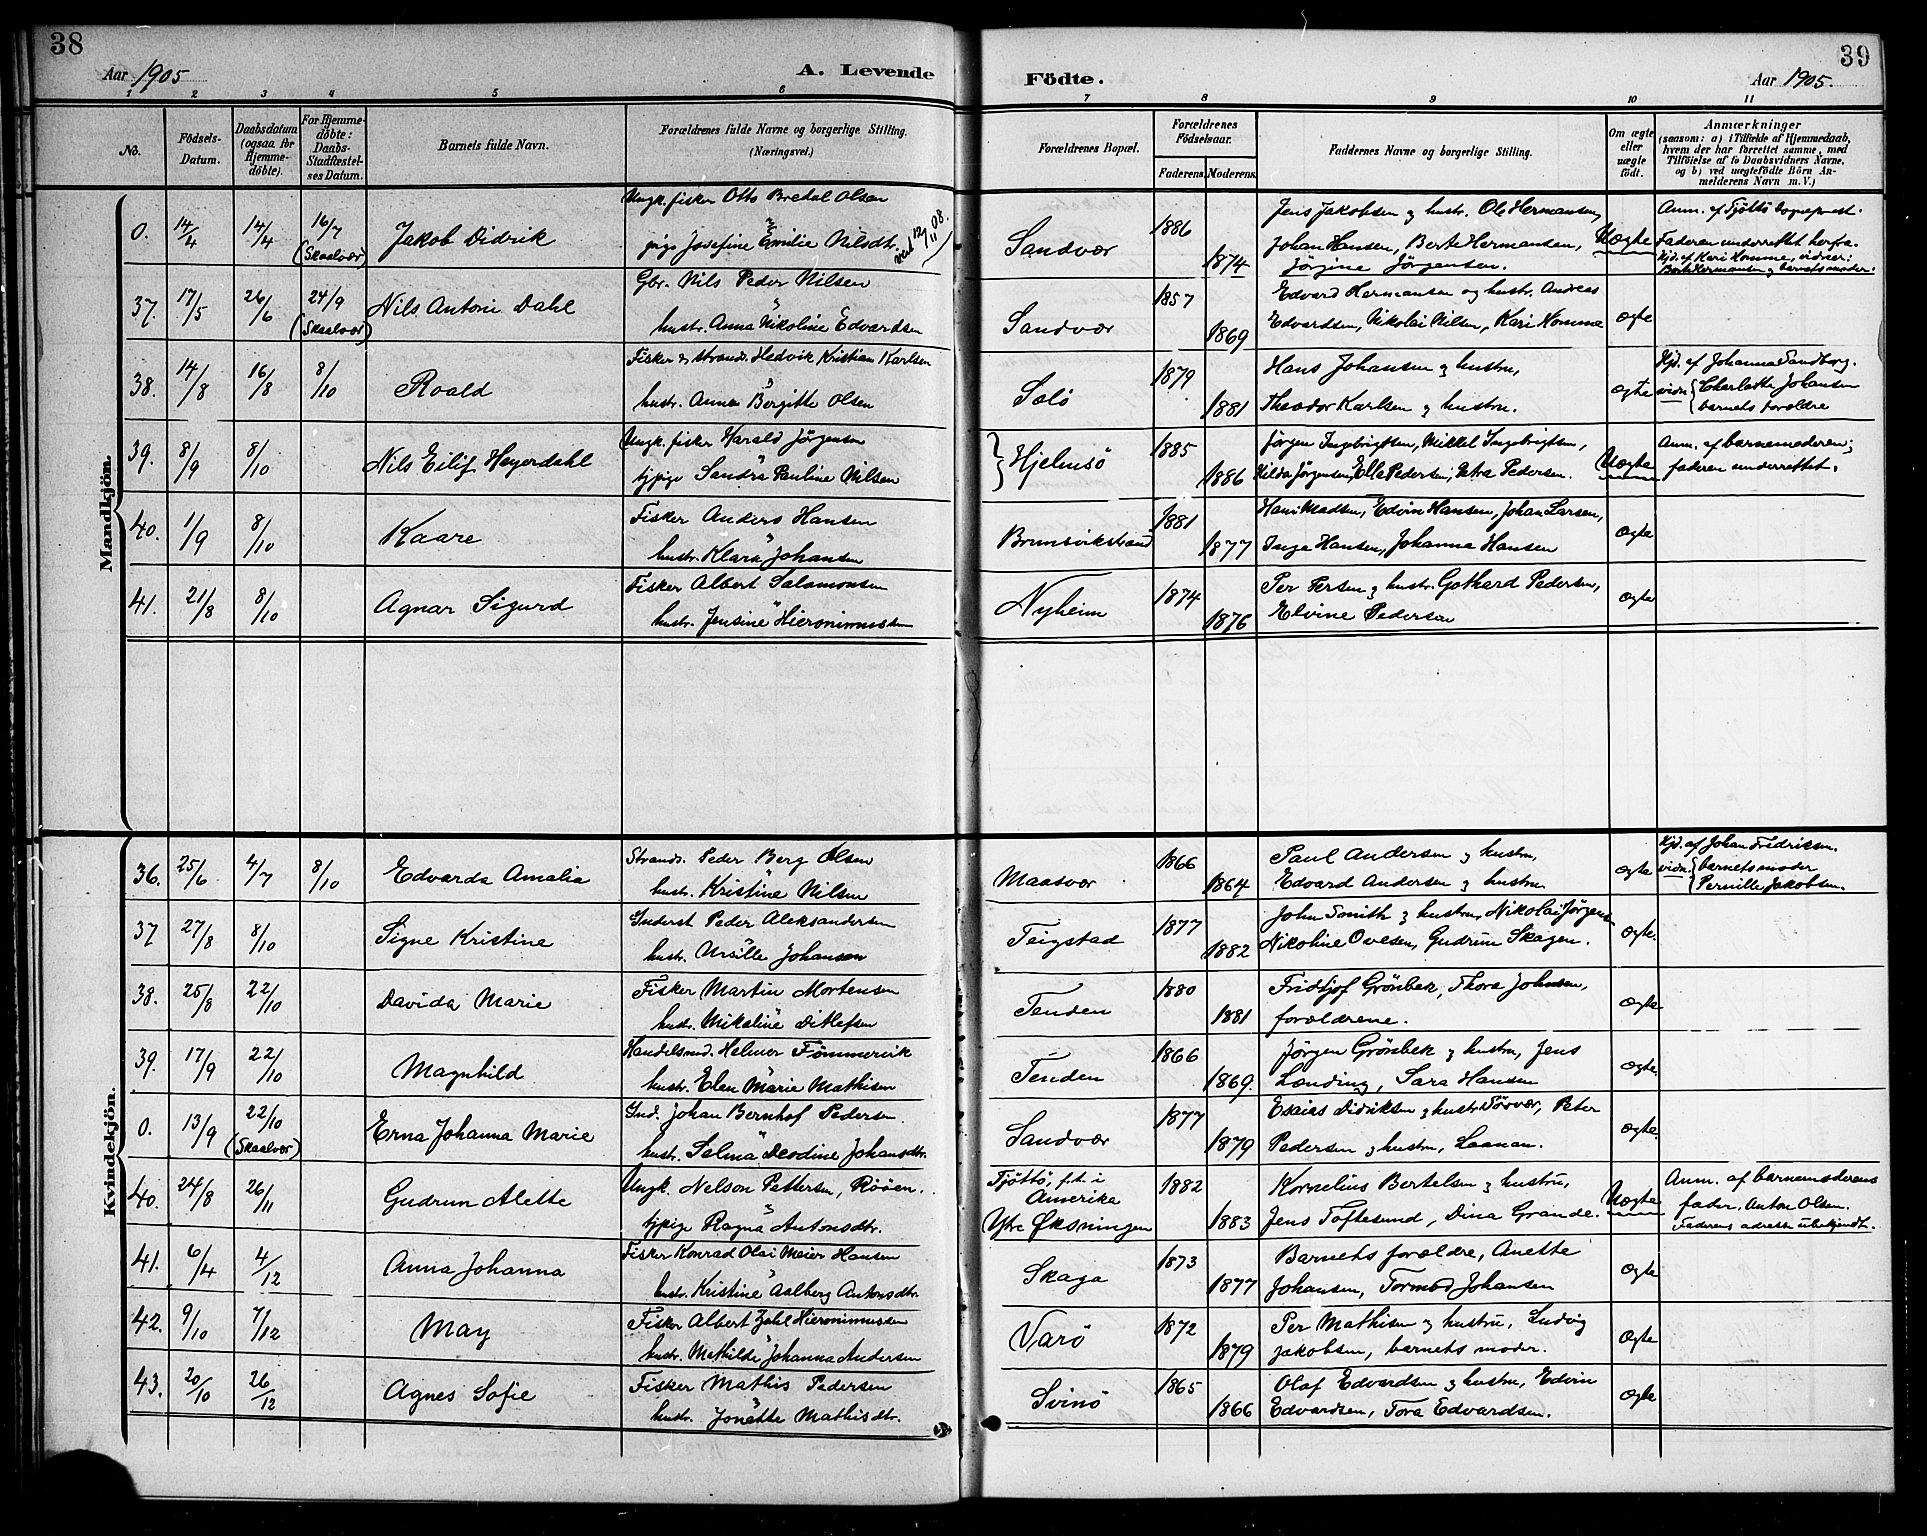 38
Aar 1905
A. Levende
1 2 3 4 5 6
No.
Födsels-
Datum.
Daabsdatum
(ogsaa for
Hjemme-
döbte).
For Hjemme-
döbte:
Daabs-
Stadfæstel-
ses Datum.
Barnets fulde Navn.
Forældrenes fulde Navne og borgerlige Stilling.
(Næringsvei.)
Mandkjön.
0. 14/4 14/4 16/7 (Skaalvær) Jakob Didrik
Ungk. fisker Otto Bredal Olsen
pige Josefine Emilie Nilsdt.
viet 12/11 08.
37. 17/5 26/6 24/9 (Skaalvær) Nils Antoni Dahl
Gbr. Nils Peder Nilsen
hustr. Anna Nikoline Edvardsen
38. 14/8 16/8 8/10 Roald
Fisker & strands. Hedvik Kristian Karlsen
hustr. Anna Bergitte Olsen
39. 8/9 8/10 Nils Eilif Heyerdahl
Ungk. fisker Harald Jörgensen
tjpige Sandra Pauline Nilsen
40. 1/9 8/10 Kaare
Fisker Anders Hansen
hustr. Klara Johansen
41. 21/8 8/10 Agnar Sigurd
Fisker Albert Salamonsen
hustr. Jensine Hieronimussen
Kvindekjön.
36. 25/6 4/7 8/10 Edvarda Amalia
Strands. Peder Berg Olsen
hustr. Kristine Nilsen
37 27/8 8/10 Signe Kristine
Inderst Peder Aleksandersen
hustr. Ursille Johansen
38. 25/8 22/10 Davida Marie
Fisker Martin Mortensen
hustr. Mikaline Ditlefsen
39. 17/9 22/10 Magnhild
Handelsmd. Helmer Fömmervik
hustr. Elen Marie Mathisen
0. 13/9 22/10 (Skaalvær) Erna Johanna Marie
Ind. Johan Bernhof Pedersen
hustr. Selma Deodine Johansdtr.
40. 24/8 26/11 Gudrun Alette
Ungk. Nelson Pettersen, Rööen.
tjpige Ragna Antonsdtr.
41. 6/4 4/12 Anna Johanna
Fisker Konrad Olai Meier Hansen
hustr. Kristine Aalberg Antonsdtr.
42. 9/10 7/12 May
Fisker Albert Zahl Hieronimussen
hustr. Mathilde Johanna Andersen
43. 20/10 26/12 Agnes Sofie
Fisker Mathis Pedersen
hustr. Jonette Mathisdtr.
39
Födte.
Aar 1905.
7 8 9 10 11
Forældrenes Bopæl.
Forældrenes
Födselsaar.
Faderens. Moderens.
Faddernes Navne og borgerlige Stilling.
Om ægte
eller
uægte
födt.
Anmærkninger
(saasom: a) i Tilfælde af Hjemmedaab,
hvem der har forrettet samme, med
Tilföielse af to Daabsvidners Navne,
og b) ved uægtefödte Börn An-
melderens Navn m. V.)
Sandvær 1886 1874
Jens Jakobsen & hustr. Ole Hermansen,
Johan Hansen, Berte Hermansen,
Jörgine Jörgensen.
Uægte
Anm. af Tjöttö sogneprest.
Faderen underrettet herfra.
Hjd. af Kari Homme, vidner:
Berte Hermansen & barnets moder.
Sandvær 1857 1869
Edvard Hermansen og hustr. Andreas
Edvardsen, Nikolai Nilsen, Kari Homme
ægte
Solö 1879 1881
Hans Johansen & hustru,
Theodor Karlsen & hustru.
ægte
Hjd. af Johanna Sandberg.
vidn. Charlotte Johansen
barnets forældre
Hjelmsö 1885 1886
Jörgen Ingebrigtsen, Mikkel Ingebrigtsen,
Hilda Jörgensen, Ella Pedersen, Petra Pedersen.
Uægte
Anm. af barnemoderen;
faderen underrettet.
Brunsvikstrand 1881 1877
Hans Madsen, Edvin Hansen, Johan Larsen,
Inga Hansen, Johanna Hansen
ægte
Nyheim 1874 1876
Per Persen & hustr. Gothard Pedersen,
Elvine Pedersen
ægte
Maasvær 1866 1864
Paul Andersen & hustru,
Edvard Andersen & hustru
ægte
Hjd. af Johan Fredriksen.
vidn. barnets moder
Pernille Jakobsen.
Teigstad 1877 1882
John Smith & hustru, Nikolai Jörgens
Nikoline Ovesen, Gudrun Skagen.
ægte.
Tenden 1880 1881
Fridtjof Grönbek, Thora Johnsen,
forældrene.
ægte
Tenden 1866 1869.
Jörgen Grönbek & hustru, Jens
Lænding, Sara Hansen
ægte.
Sandvær 1877 1879
Esaias Didriksen & hustr. Törvær, Peter
Pedersen & hustru, Laanan.
ægte.
Tjöttö, f.t. i
Amerika
Ytre Øksningen 1882 1883
Kornelius Bertelsen & hustru,
Jens Toftesund, Dina Grande.
Uægte
Anm. af barnemoderens
fader, Anton Olsen.
Faderens adresse ubekjendt.
Skaga 1873 1877
Barnets forældre, Anette
Johansen, Tormod Johansen
ægte
Varö 1872 1879
Per Mathisen og hustru, Ludvig
Jakobsen, barnets moder.
ægte
Svinö 1865 1866
Olaf Edvardsen & hustru, Edvin
Edvardsen, Tora Edvardsen.
ægte